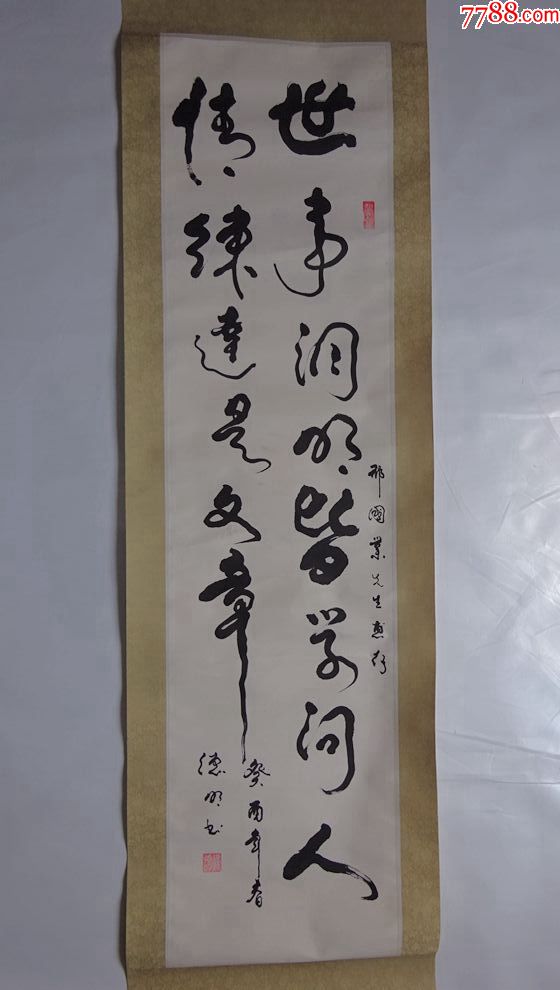 7788.com
世事洞明皆学问人
情练达是文章
邢國業先生惠存
癸酉年春
德明书